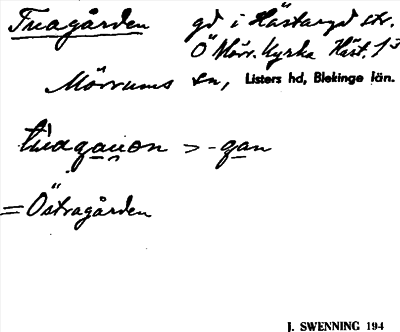 Tuagården gd i Hästaryd str.
Ö Mörr. Kyrka Häst. 1 3
Mörrums sn, Listers hd, Blekinge län.
> -gan
= Östragården
J. SWENNING 194